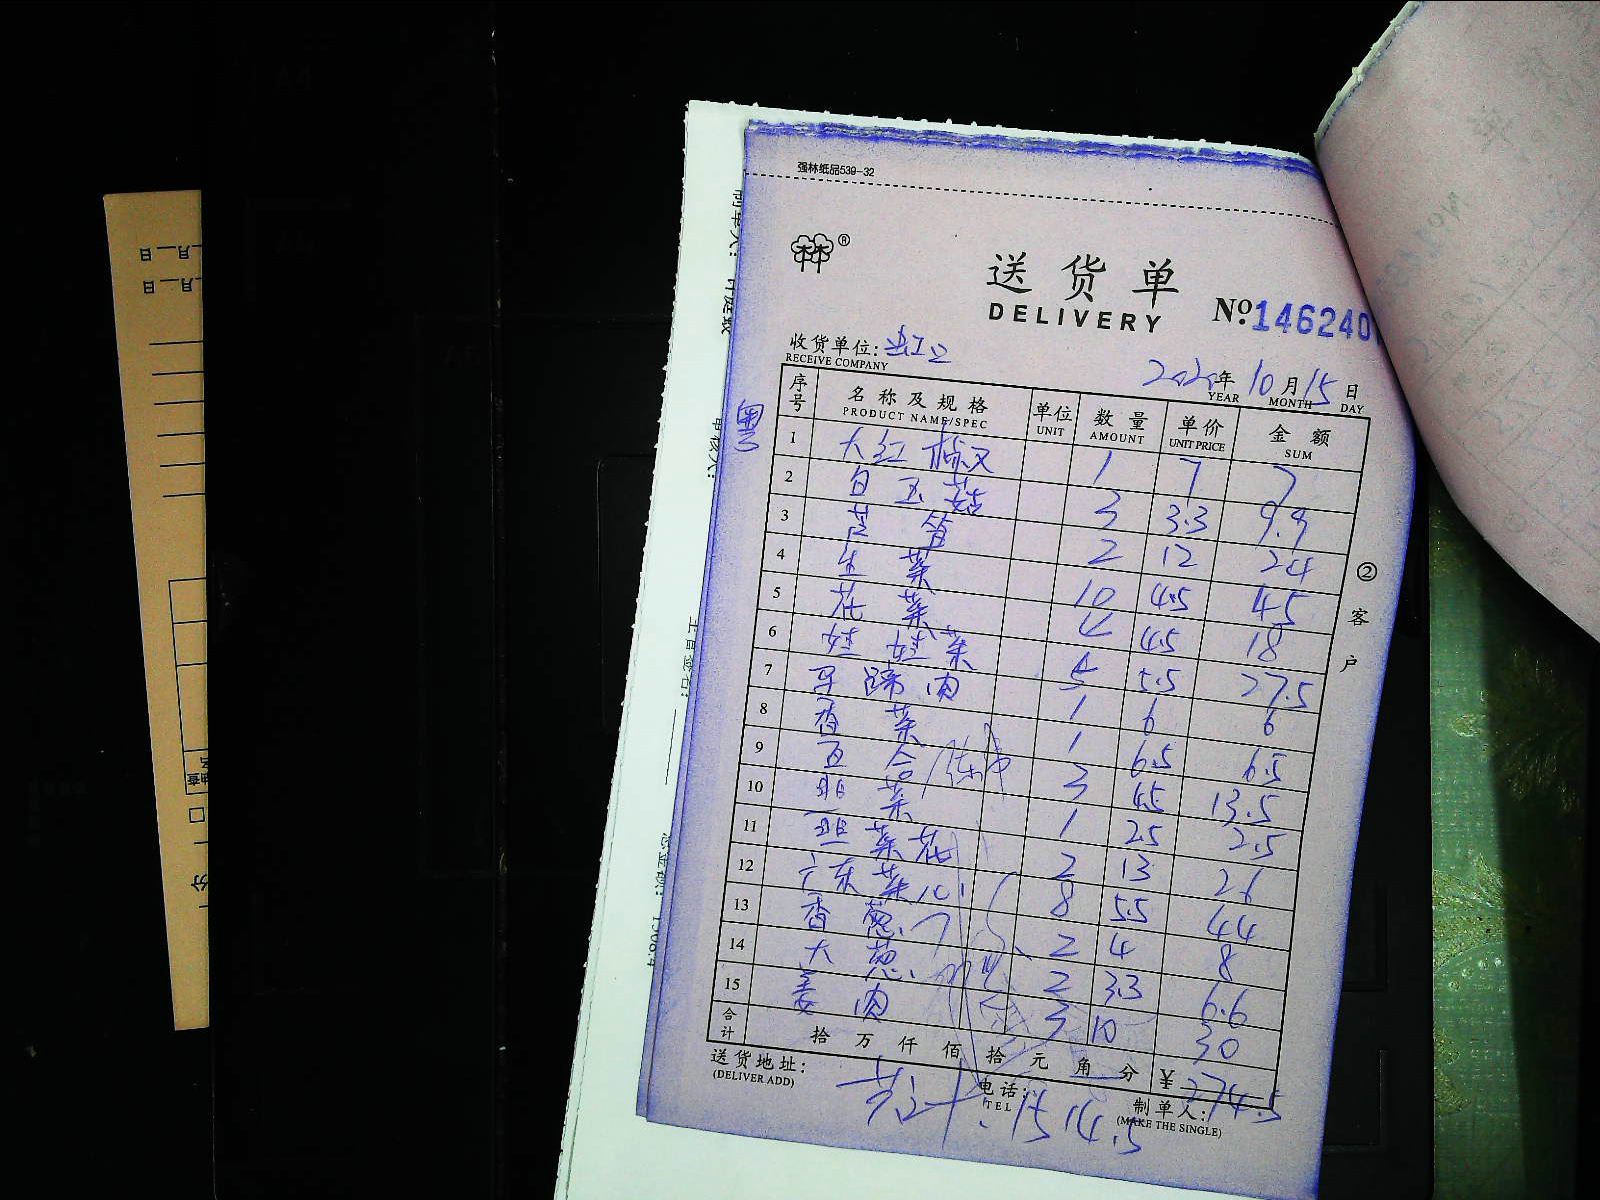 强林纸品539-32
林®
送货单
DELIVERY
№ 146240
收货单位:
RECEIVE COMPANY
2020年 10月 15日
YEAR MONTH DAY
序号 名称及规格 单位 数量 单价 金额
PRODUCT NAME/SPEC UNIT AMOUNT UNIT PRICE SUM
1 大红椒 1 7 7
2 白玉菇 3 3.3 9.9
3 芦笋 2 12 24
4 生菜 10 4.5 45
5 花菜 4 4.5 18
6 娃娃菜 5 5.5 27.5
7 马蹄肉 1 6 6
8 香菜 1 6.5 6.5
9 百合 3 4.5 13.5
10 韭菜 1 2.5 2.5
11 韭菜花 2 13 26
12 广东菜心 8 5.5 44
13 香葱 2 4 8
14 大葱 2 3.3 6.6
15 姜肉 3 10 30
合计 拾万仟佰拾元角分 ¥ 274.5
送货地址:
(DELIVER ADD)
电话:
TEL
制单人:
(MAKE THE SINGLE)
共计: 1514.5
②客户